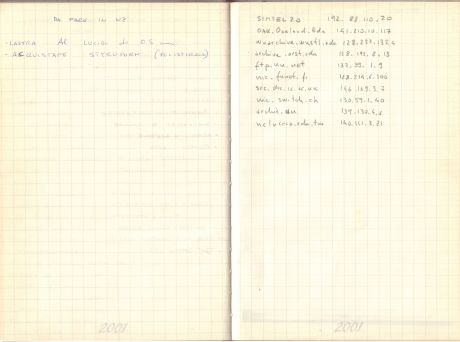 DA FARE IN VZ
- LASTRA Al LUCIDA da 0.5 mm
- ACQUISTARE
2001
SIMTEL20 192.88.110.20
OAK.Oakland.Edu 141.210.10.117
wuarchive.wustl.edu 128.252.135.4
archive.orst.edu
ftp.uu.net 137.39.1.9
nic.funet.fi 128.214.6.100
src.doc.ic.ac.uk 146.169.3.7
nic.switch.ch 130.59.1.40
archie.au 139.130.4.6
nctuccca.edu.tw 140.111.3.21
2001